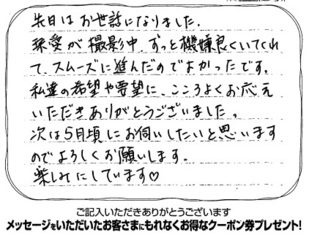 先日はお世話になりました。
珠愛が撮影中、ずっと機嫌良くいてくれ
て、スムーズに進んだのでよかったです。
私達の希望や要望に、こころよくお応え
いただきありがとうございました。
次は5月頃にお伺いしたいと思います
のでよろしくお願いします。
楽しみにしています♡
ご記入いただきありがとうございます
メッセージをいただいたお客さまにもれなくお得なクーポン券プレゼント!